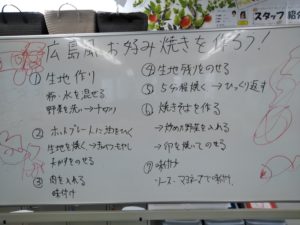 スタッフ紹介
広島風お好み焼きを作ろう!
① 生地作り
粉・水を混ぜる
野菜を洗い→千切り
② ホットプレートに油をひく
生地を焼く→
キャベツをのせる
③ 肉を入れる
味付け
④ 生地残りをのせる
⑤ 5分程焼く→ひっくり返す
⑥ 焼きそばを作る
→炒め野菜を入れる
→卵を焼いてのせる
⑦ 味付け
ソース・マヨネーズで味付け